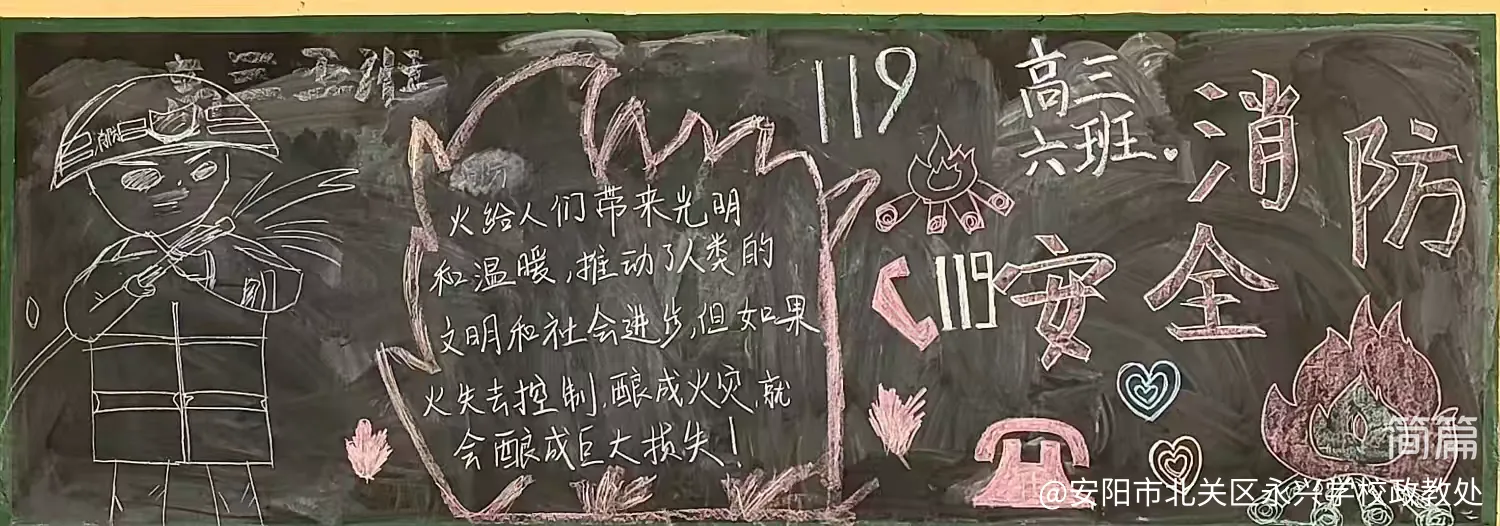 三二班
消防
火给人们带来光明
和温暖,推动了人类的
文明和社会进步,但如果
火失去控制,酿成火灾,就
会酿成巨大损失!
119
高三
六班
消防
安全
119
简篇
@安阳市北关区永兴学校政教处